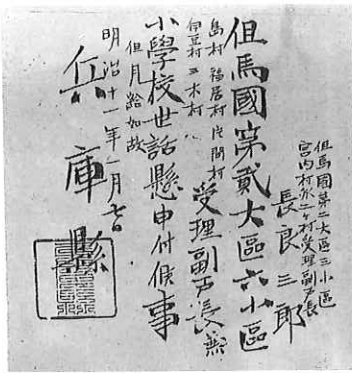 但馬國第二大區三小區
宮内村外二ケ村受理副戸長
長良三郎
但馬國第貳大區六小區
島村 福居村 片間村
伊豆村 三木村
受理副戸長兼
小學校世話懸申付候事
但月給如故
明治十一年一月七日
兵庫縣